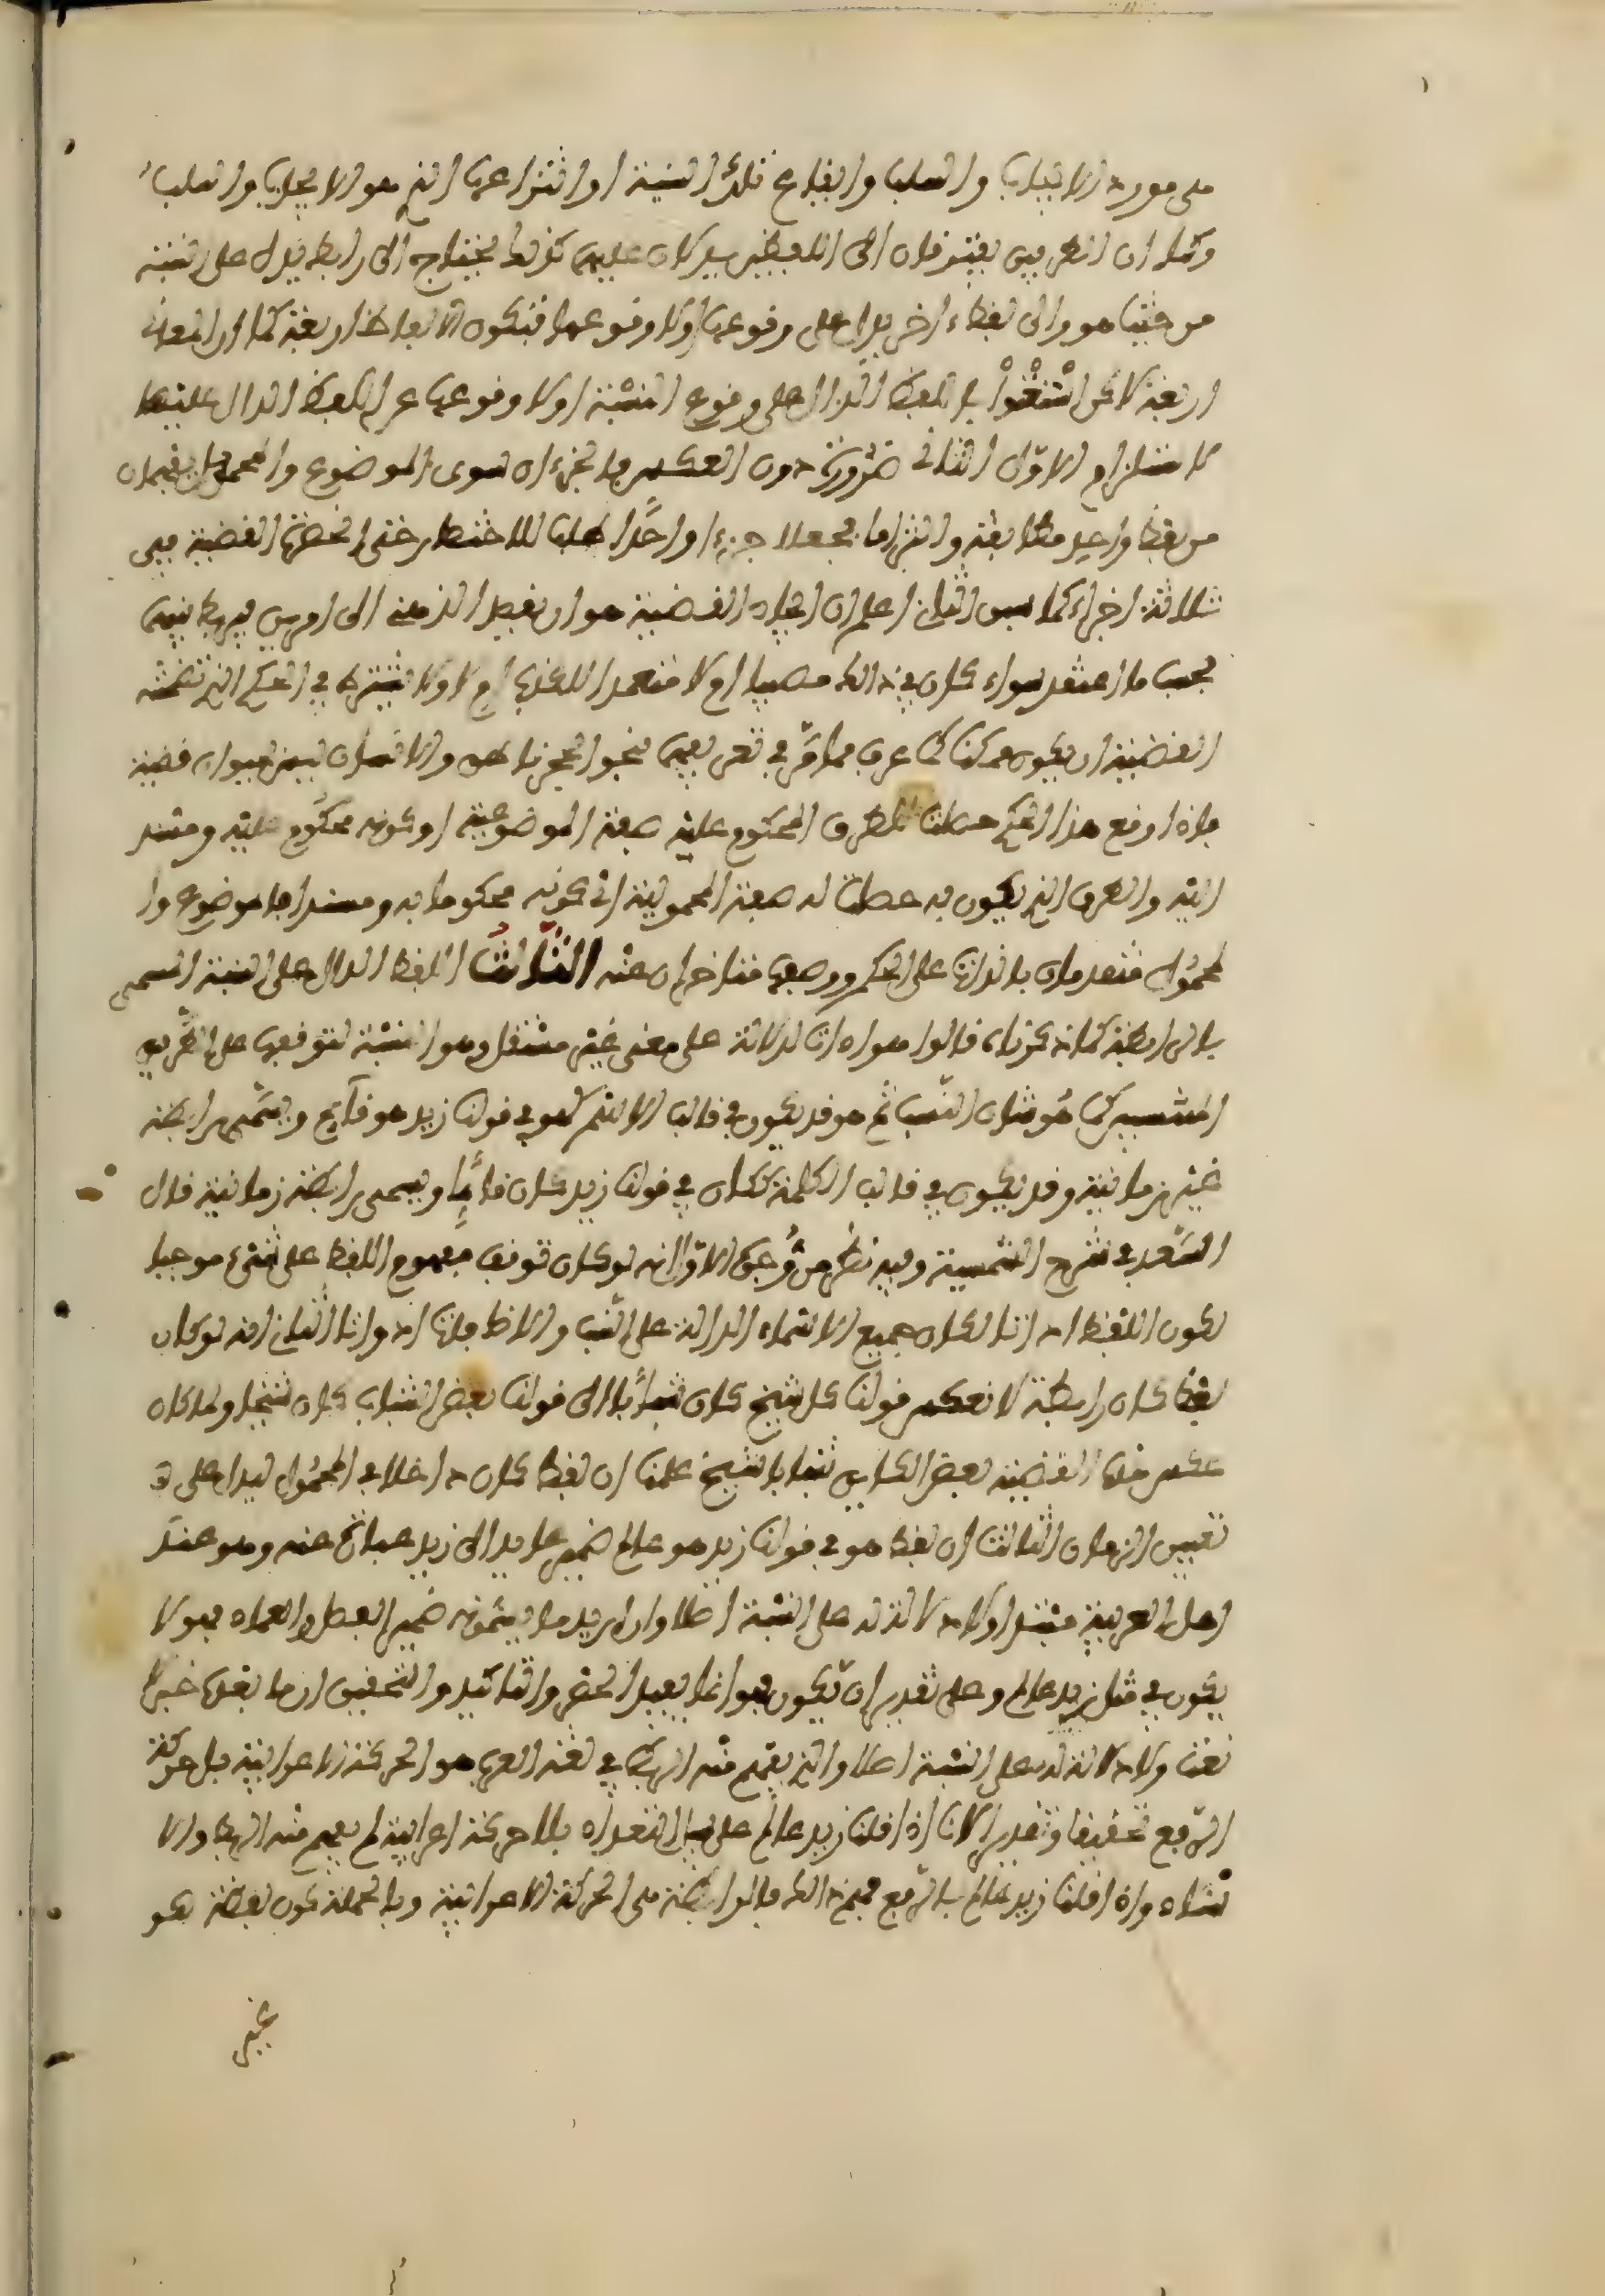 هي مورد الايجاب والسلب وايقاع تلك النسبة او انتزاعها الذي هو الايجاب والسلب
وكما ان الطرفين يفتقران الى اللفظين يدلان عليهما كذلك يحتاج الى رابط يدل على النسبة
من حيث هو والى لفظ ءاخر يدل على وقوعها اولا وقوعها فتكون الالفاظ اربعة كما ان المعاني
اربعة لاكن استغنوا باللفظ الدال على وقوع النسبة اولا وقوعها عن اللفظ الدال عليها
لاستلزام الاول الثاني ضرورة دون العكس فالجزءان سوى الموضوع والمحمول يفهمان
من لفظ واحد مطابقة والتزاما فجعلا جزءا واحدا طلبا للاختصار حتى انحصرت القضية في
ثلاثة اجزاء كما سبق الثاني اعلم ان ايجاد القضية هو ان يقصد الذهن الى امرين يربط بينهما
بحسب ما اعتقد سواء كان في ذالك مصيبا ام لا متعمدا للكذب ام لا ولا يشترط في الحكم الذي تضمنته
القضية ان يكون ممكنا كما عرف مما مر في تعريفها فنحو الحجر ناطق والانسان ليس بحيوان قضية
فاذا وقع هذا الحكم حصلت للطرف المحكوم عليه صفة الموضوعية او كونه محكوم عليه ومسند
اليه والطرف الذي يكون به حصلت له صفة المحمولية اي كونه محكوما به ومسندا فالموضوع وا
لمحمول متقدمان بالذات على الحكم ووصفهما متاخران عنه الثالث اللفظ الدال على النسبة المسمى
بالرابطة كما ذكرناه قالوا هو اداة لدلالته على معنى غير مستقل وهو النسبة لتوقفها على الطرفين
المنتسبين كما هو شان النسب ثم هو قد يكون في قالب الاسم كهو في قولنا زيد هو قائم ويسمى رابطة
غير زمانية وقد يكون في قالب الكلمة ككان في قولنا زيد كان قائما ويسمى رابطة زمانية قال
السعد في شرح الشمسية وفيه نظر من وجوه الاول انه لو كان توقف مفهوم اللفظ على شيء موجبا
لكون اللفظ اداة لكان جميع الاسماء الدالة على النسب والاضافات اداة الثاني انه لو كان
لفظ كان رابطة لانعكس قولنا كل شيخ كان شابا الى قولنا بعض الشاب كان شيخا ولما كان
عكس هذه القضية بعض الكاين شابا شيخ علمنا ان لفظ كان داخلا في المحمول ليدل على
تعيين الزمان الثالث ان لفظ هو في قولنا زيد هو عالم ضمير عايد الى زيد عبارة عنه وهو عند
اهل العربية مبتدا ولا دلالة له على النسبة اصلا وان اريد ما يسمونه ضمير الفصل والعماد فهو لا
يكون في مثل زيد عالم وعلى تقدير ان يكون فهو انما يفيد الحصر والتاكيد والتحقيق ان ما بعده خبر لا
نعت ولا دلالة له على النسبة اصلا والذي يفهم منه الربط في لغة العرب هو الحركة الاعرابية بل حركة
الرفع تحقيقا وتقديرا لانا اذا قلنا زيد عالم على سبيل التعداد بلا حركة اعرابية لم يفهم منه الربط والا
سناد واذا قلنا زيد عالم بالرفع فهم ذالك فالرابطة هي الحركة الاعرابية وبالجملة كون لفظة هو
غير